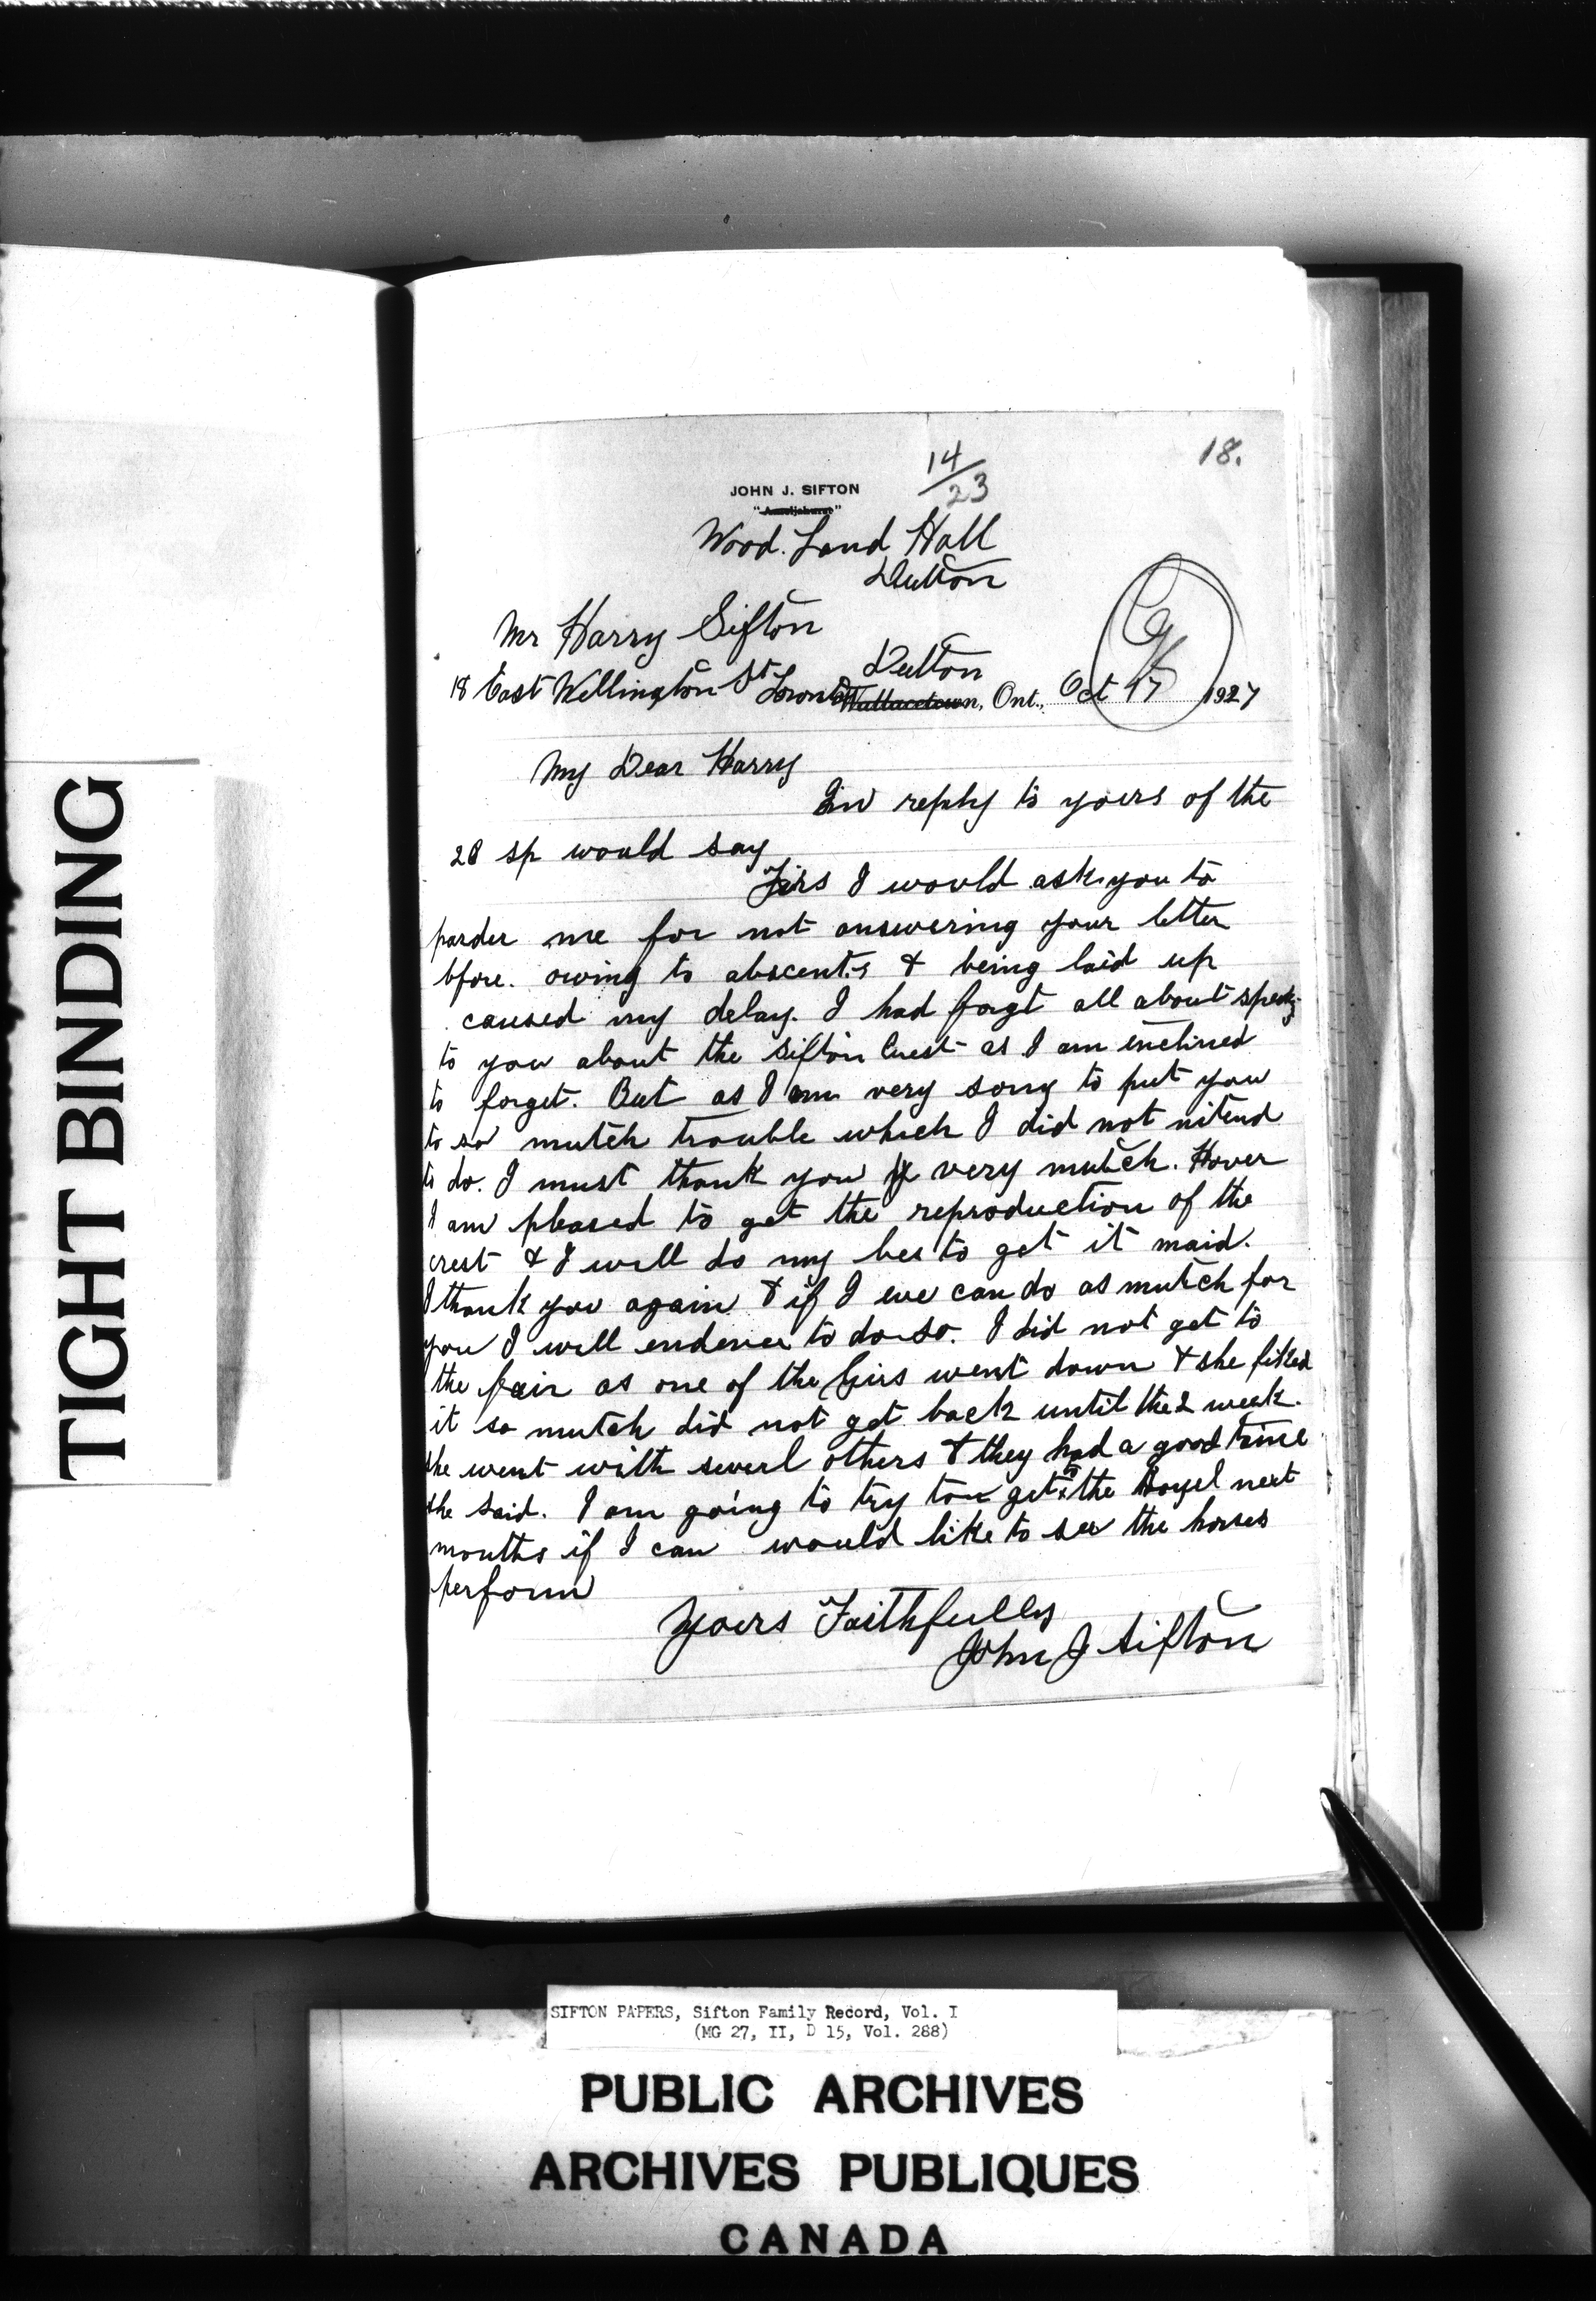 TIGHT BINDING
18.
14/23
JOHN J. SIFTON
Wood. Land Hall
Dutton
Mr Harry Sifton
Dutton
18 East Wellington St Toronto Wallacetown, Ont., Oct 17 1927
My Dear Harry
In reply to yours of the
28 sp would say
Firs I would ask you to
parder me for not answering your letter
bfore. owing to abscents & being laid up
caused my delay. I had forgt all about
to you about the Sifton Crest as I am enclined
to forget. But as I am very sorry to put you
to so mutch trouble which I did not nitend
to do. I must thank you very mutch. Hover
I am pleased to get the reproduction of the
crest & I will do my bes to get it maid.
I thank you again & if I eve can do as mutch for
you I will endever to do so. I did not get to
the fair as one of the Girs went down & she liked
it so mutch did not get back until the 2 week.
she went with sevrl others & they had a good time
she said. I am going to try to get to the Royel next
months if I can would like to see the horses
perform
Yours Faithfully
John J Sifton
SIFTON PAPERS, Sifton Family Record, Vol. I
(MG 27, II, D 15, Vol. 288)
PUBLIC ARCHIVES
ARCHIVES PUBLIQUES
CANADA